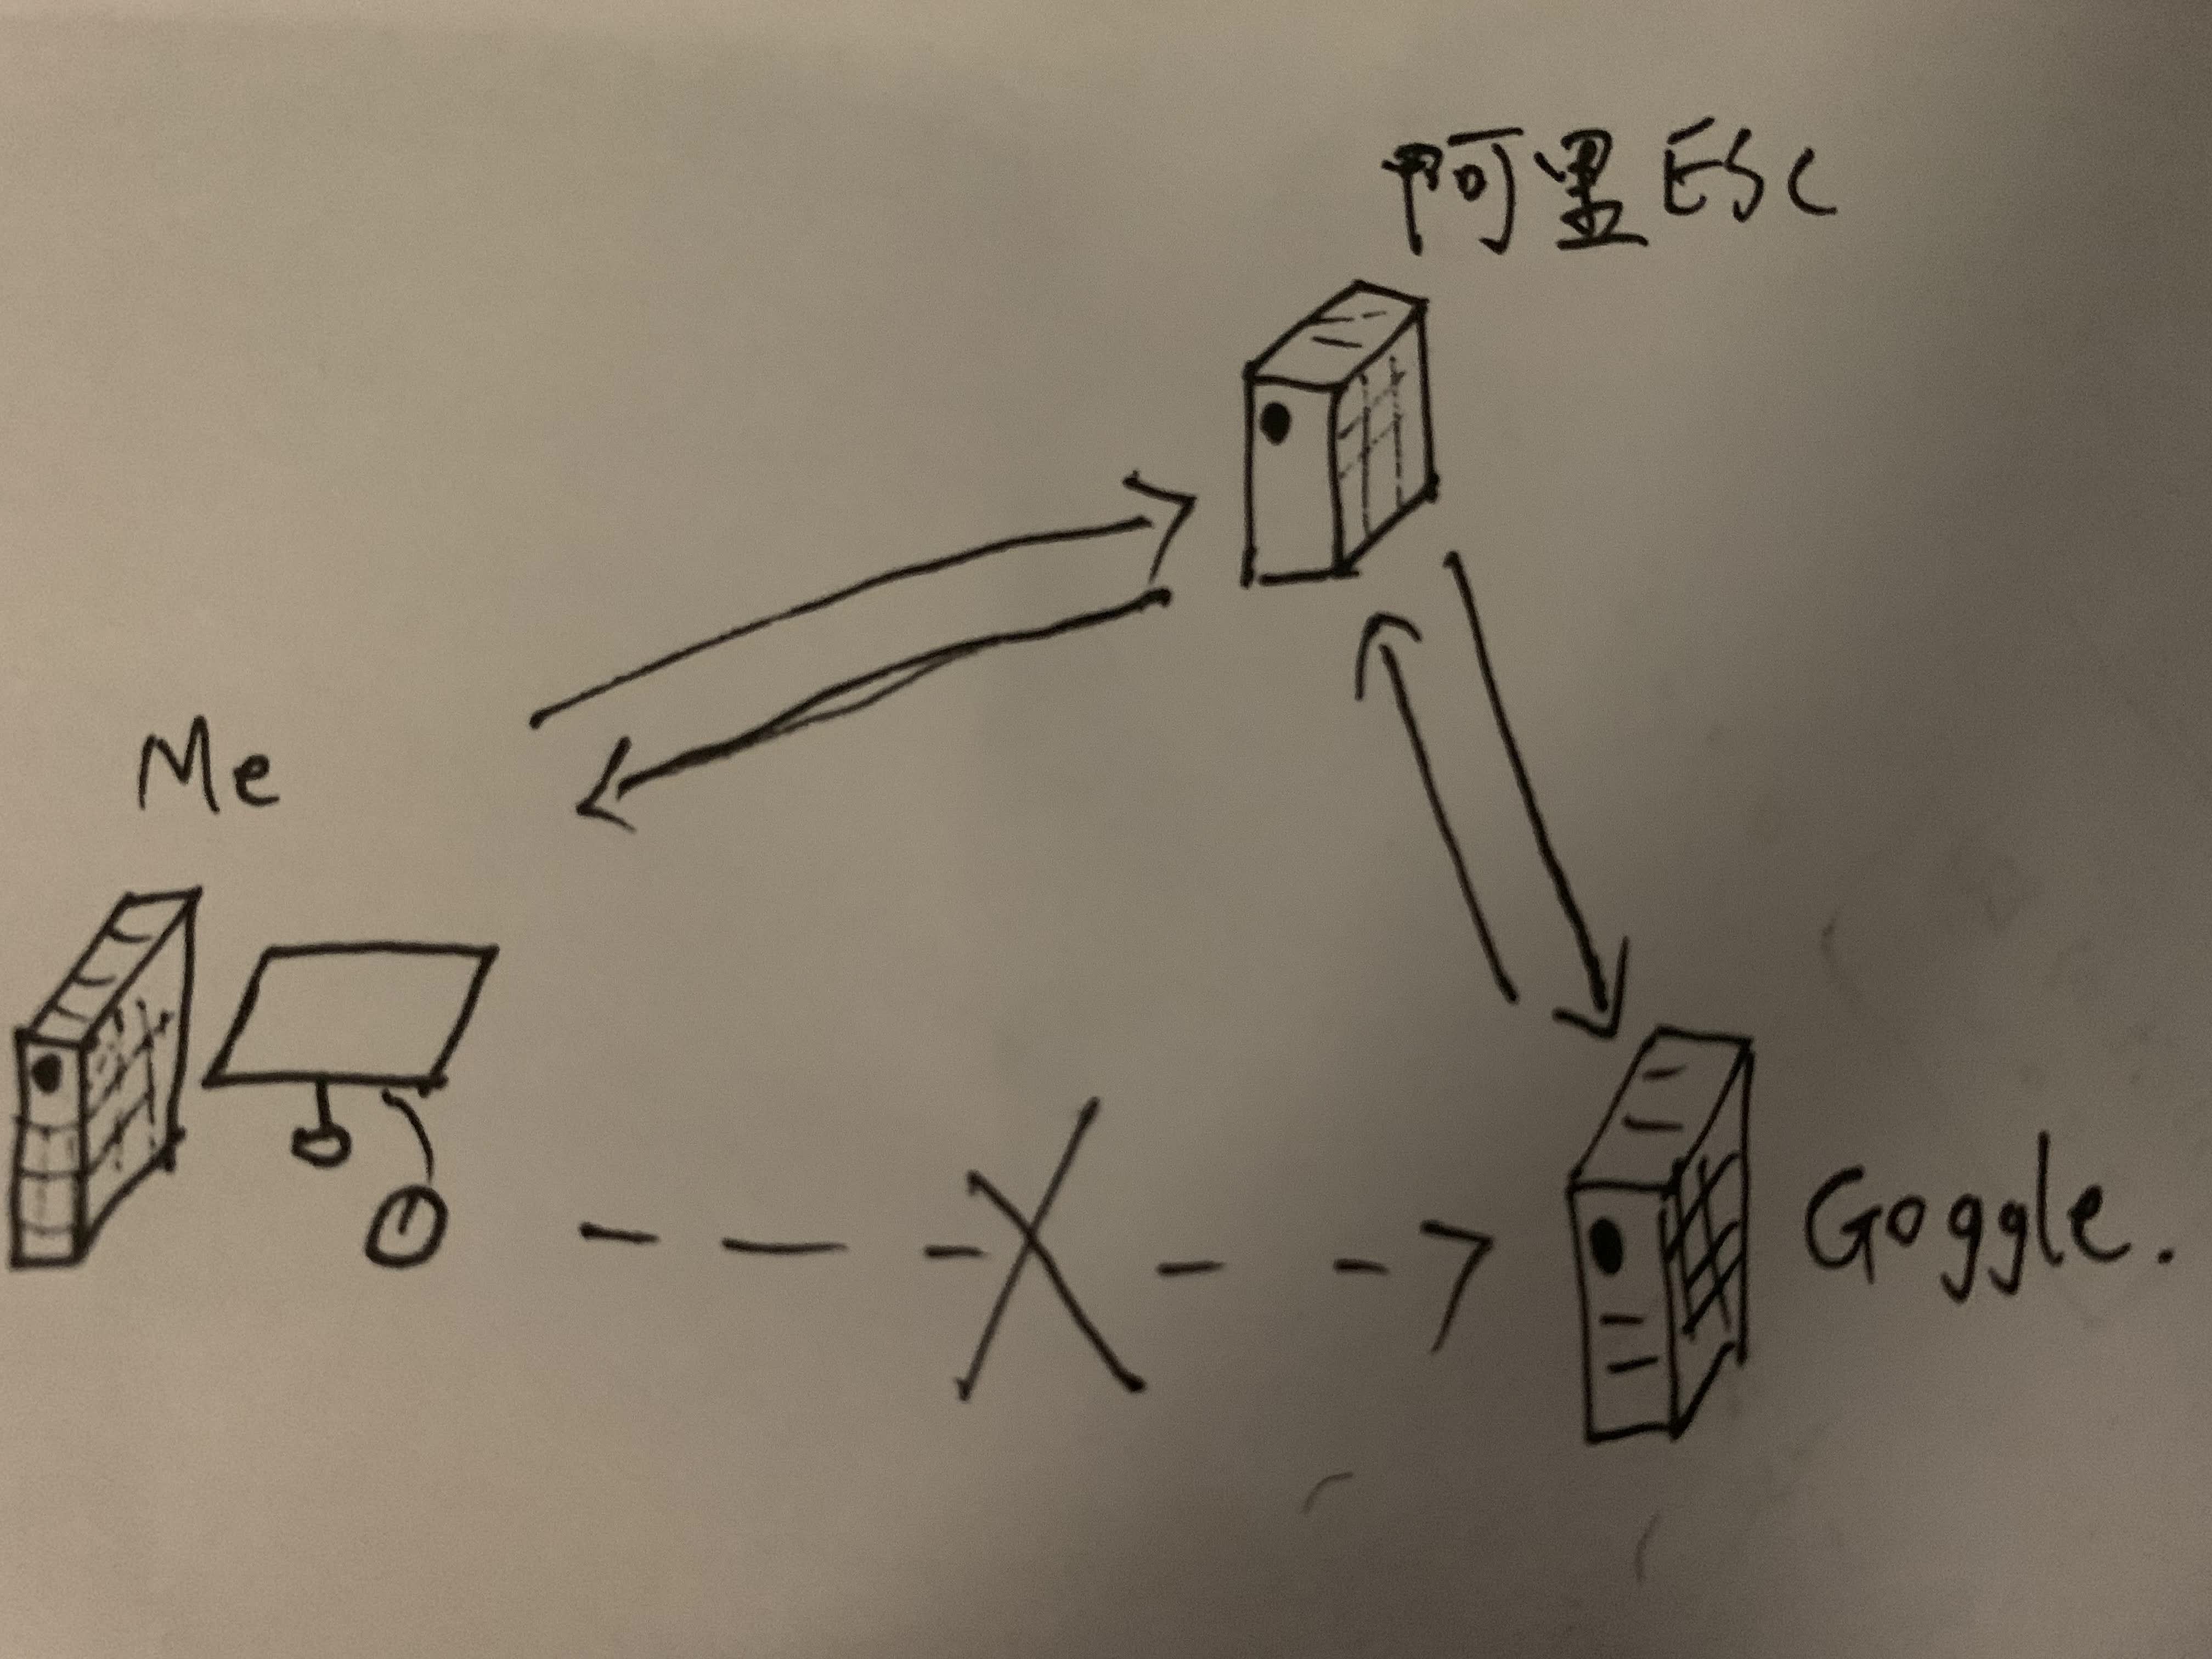 阿里ESC
Me
Goggle.